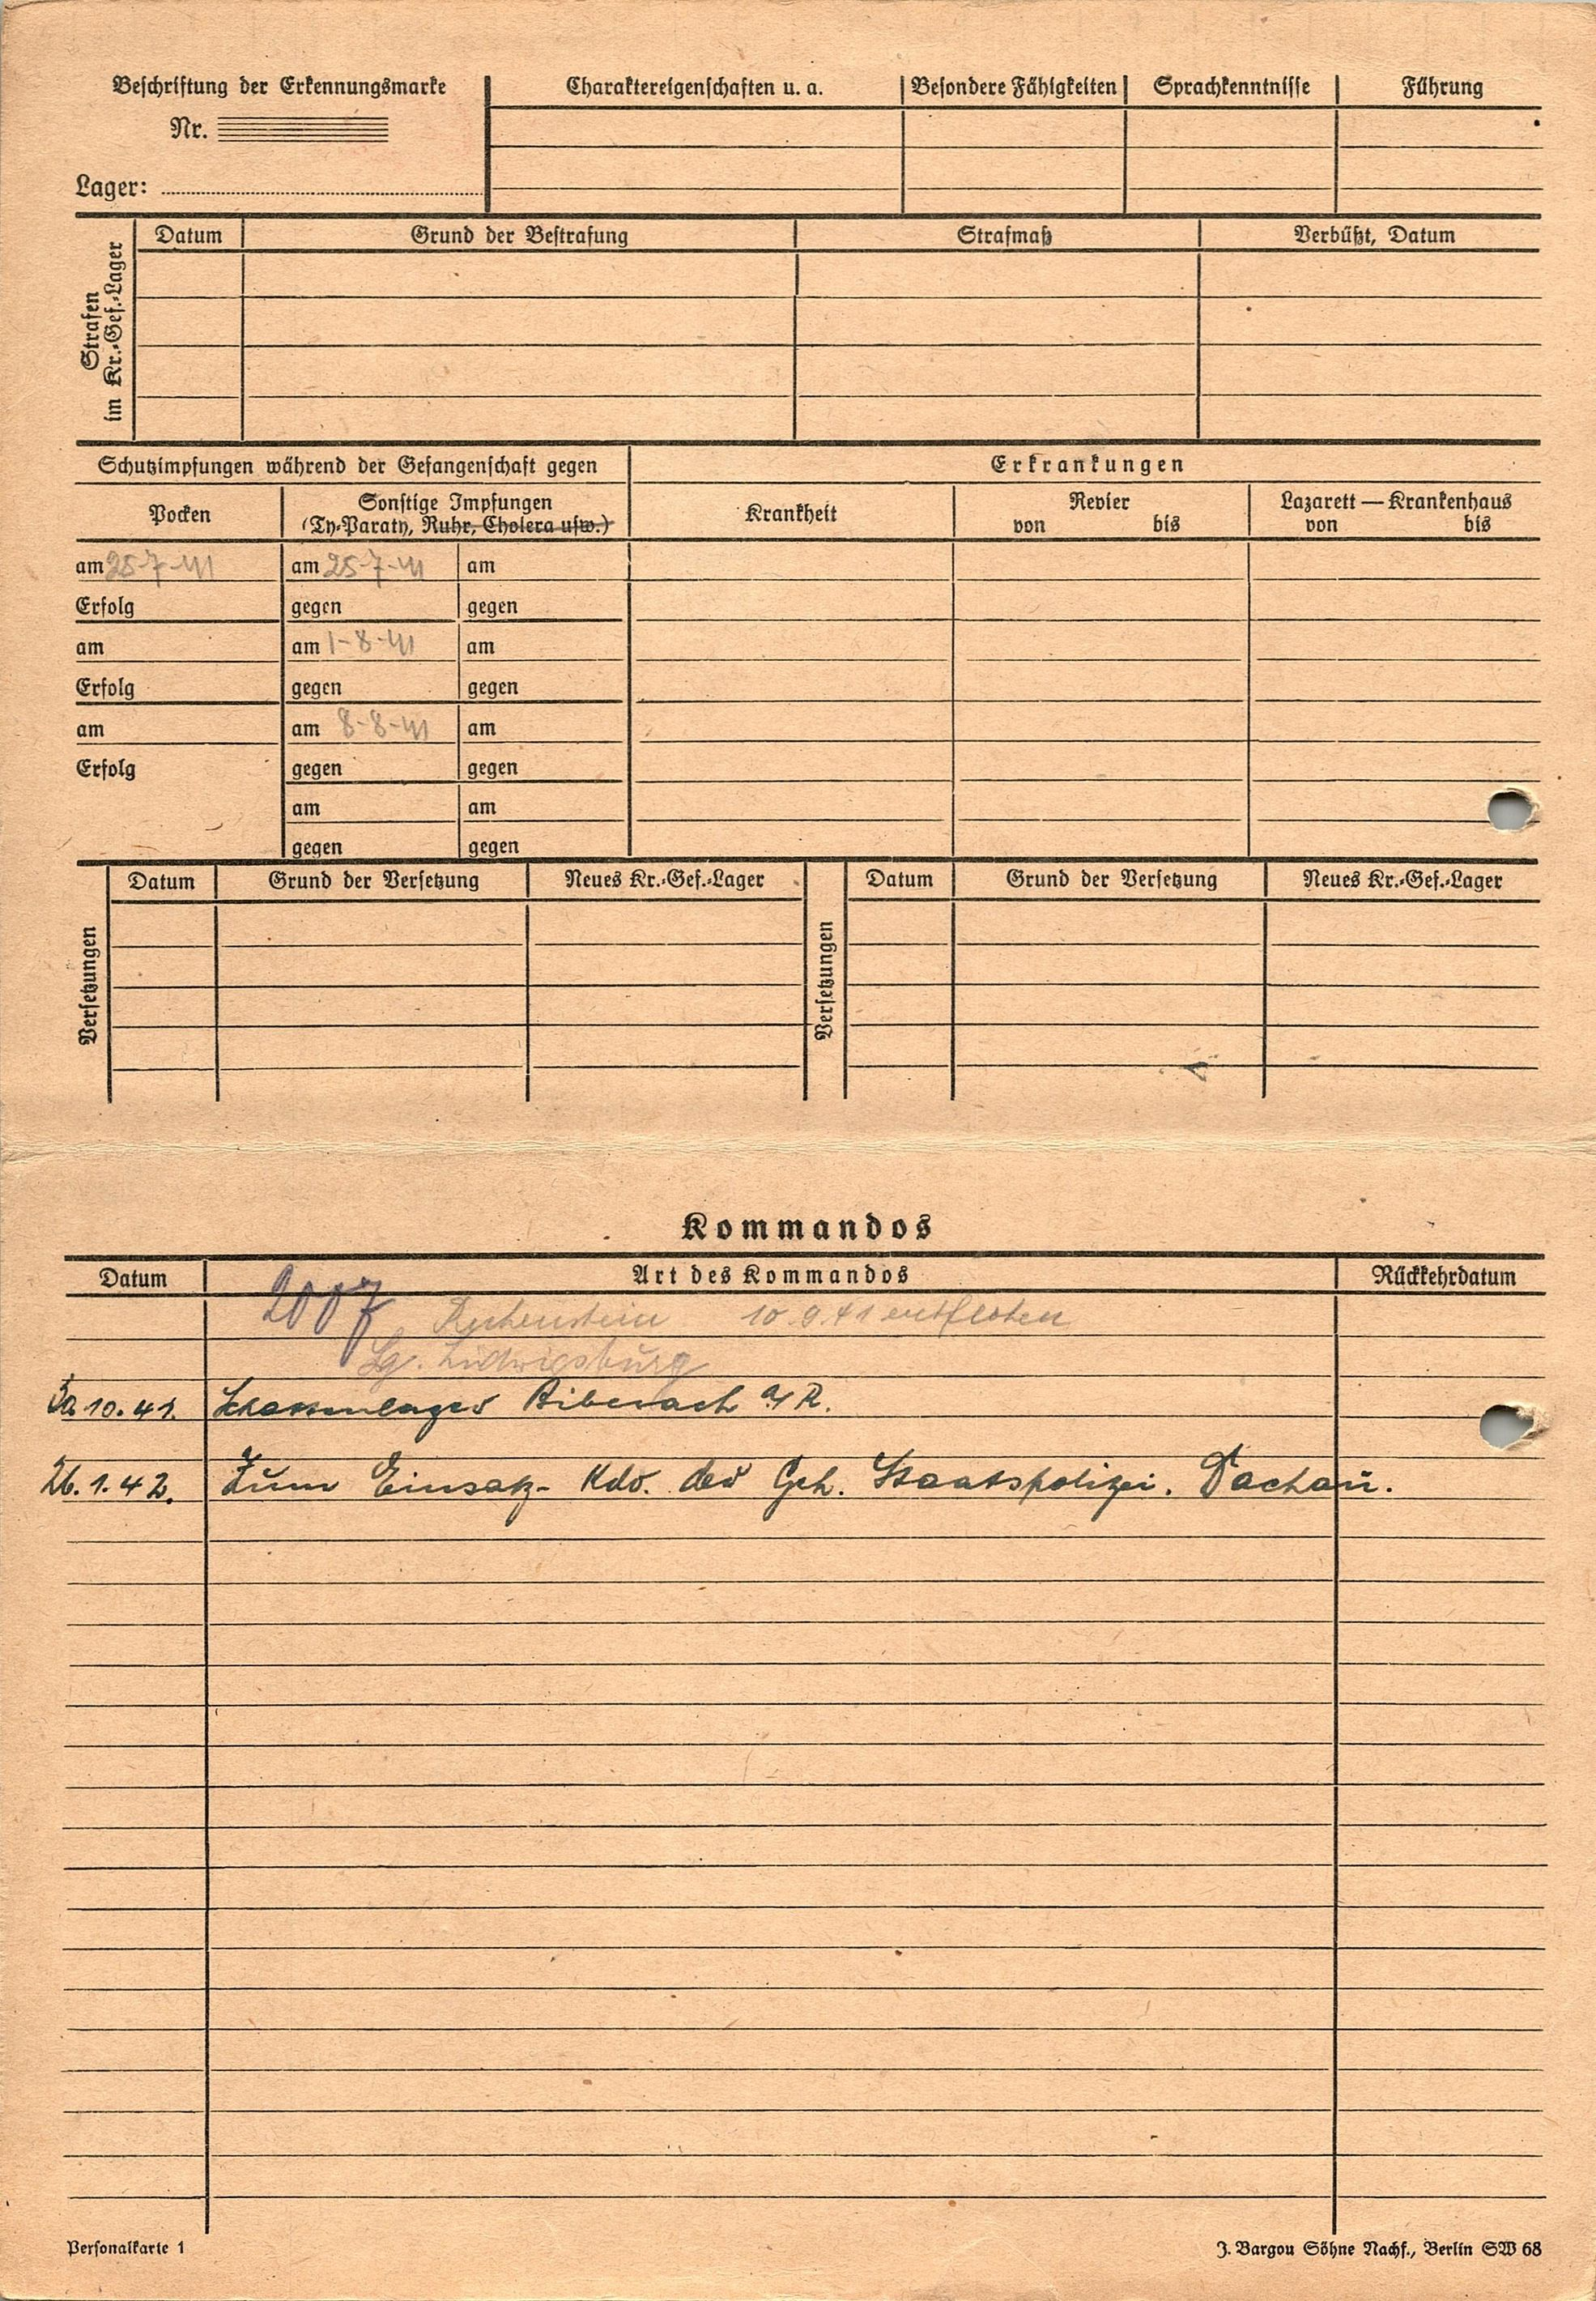 Beschriftung der Erkennungsmarke
Nr.
Lager:
Charaktereigenschaften u. a.
Besondere Fähigkeiten
Sprachkenntnisse
Führung
Strafen
im Kr.-Gef.-Lager
Datum
Grund der Bestrafung
Strafmaß
Verbüßt, Datum
Schutzimpfungen während der Gefangenschaft gegen
Erkrankungen
Pocken
Sonstige Impfungen
(Ty-Paraty, Ruhr, Cholera usw.)
Krankheit
Revier
von bis
Lazarett — Krankenhaus
von bis
am 25-7-41 am 25-7-41 am
Erfolg gegen gegen
am am 1-8-41 am
Erfolg gegen gegen
am am 8-8-41 am
Erfolg gegen gegen
am am
gegen gegen
Versetzungen
Datum Grund der Versetzung Neues Kr.-Gef.-Lager
Versetzungen
Datum Grund der Versetzung Neues Kr.-Gef.-Lager
Kommandos
Datum Art des Kommandos Rückkehrdatum
2007 10.9.41
Lg. Ludwigsburg
10.41. Biberach a/R.
26.1.42. Zum Einsatz-Kdo. der Geh. Staatspolizei. Dachau.
Personalkarte 1
J. Bargou Söhne Nachf., Berlin SW 68